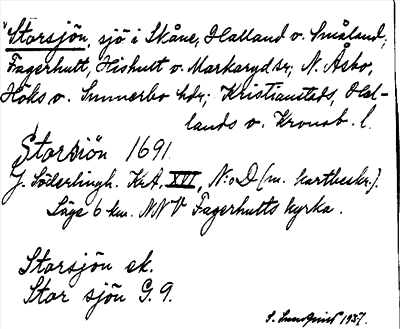 "Storsjön, sjö i Skåne, Halland o. Småland;
Fagerhult, Hishult o. Markaryd sr, N. Åsbo,
Höks o. Sunnerbo hdr; Kristianstads, Hal-
lands o. Kronob. l.
Storsiön 1691.
J. Söderlingh. KrA, XVI, N:o D (m. kartbeskr.).
Läge 6 km. NNV Fagerhults kyrka.
Storsjön ek.
Stor sjön G. 9.
S. Sundqvist 1937.